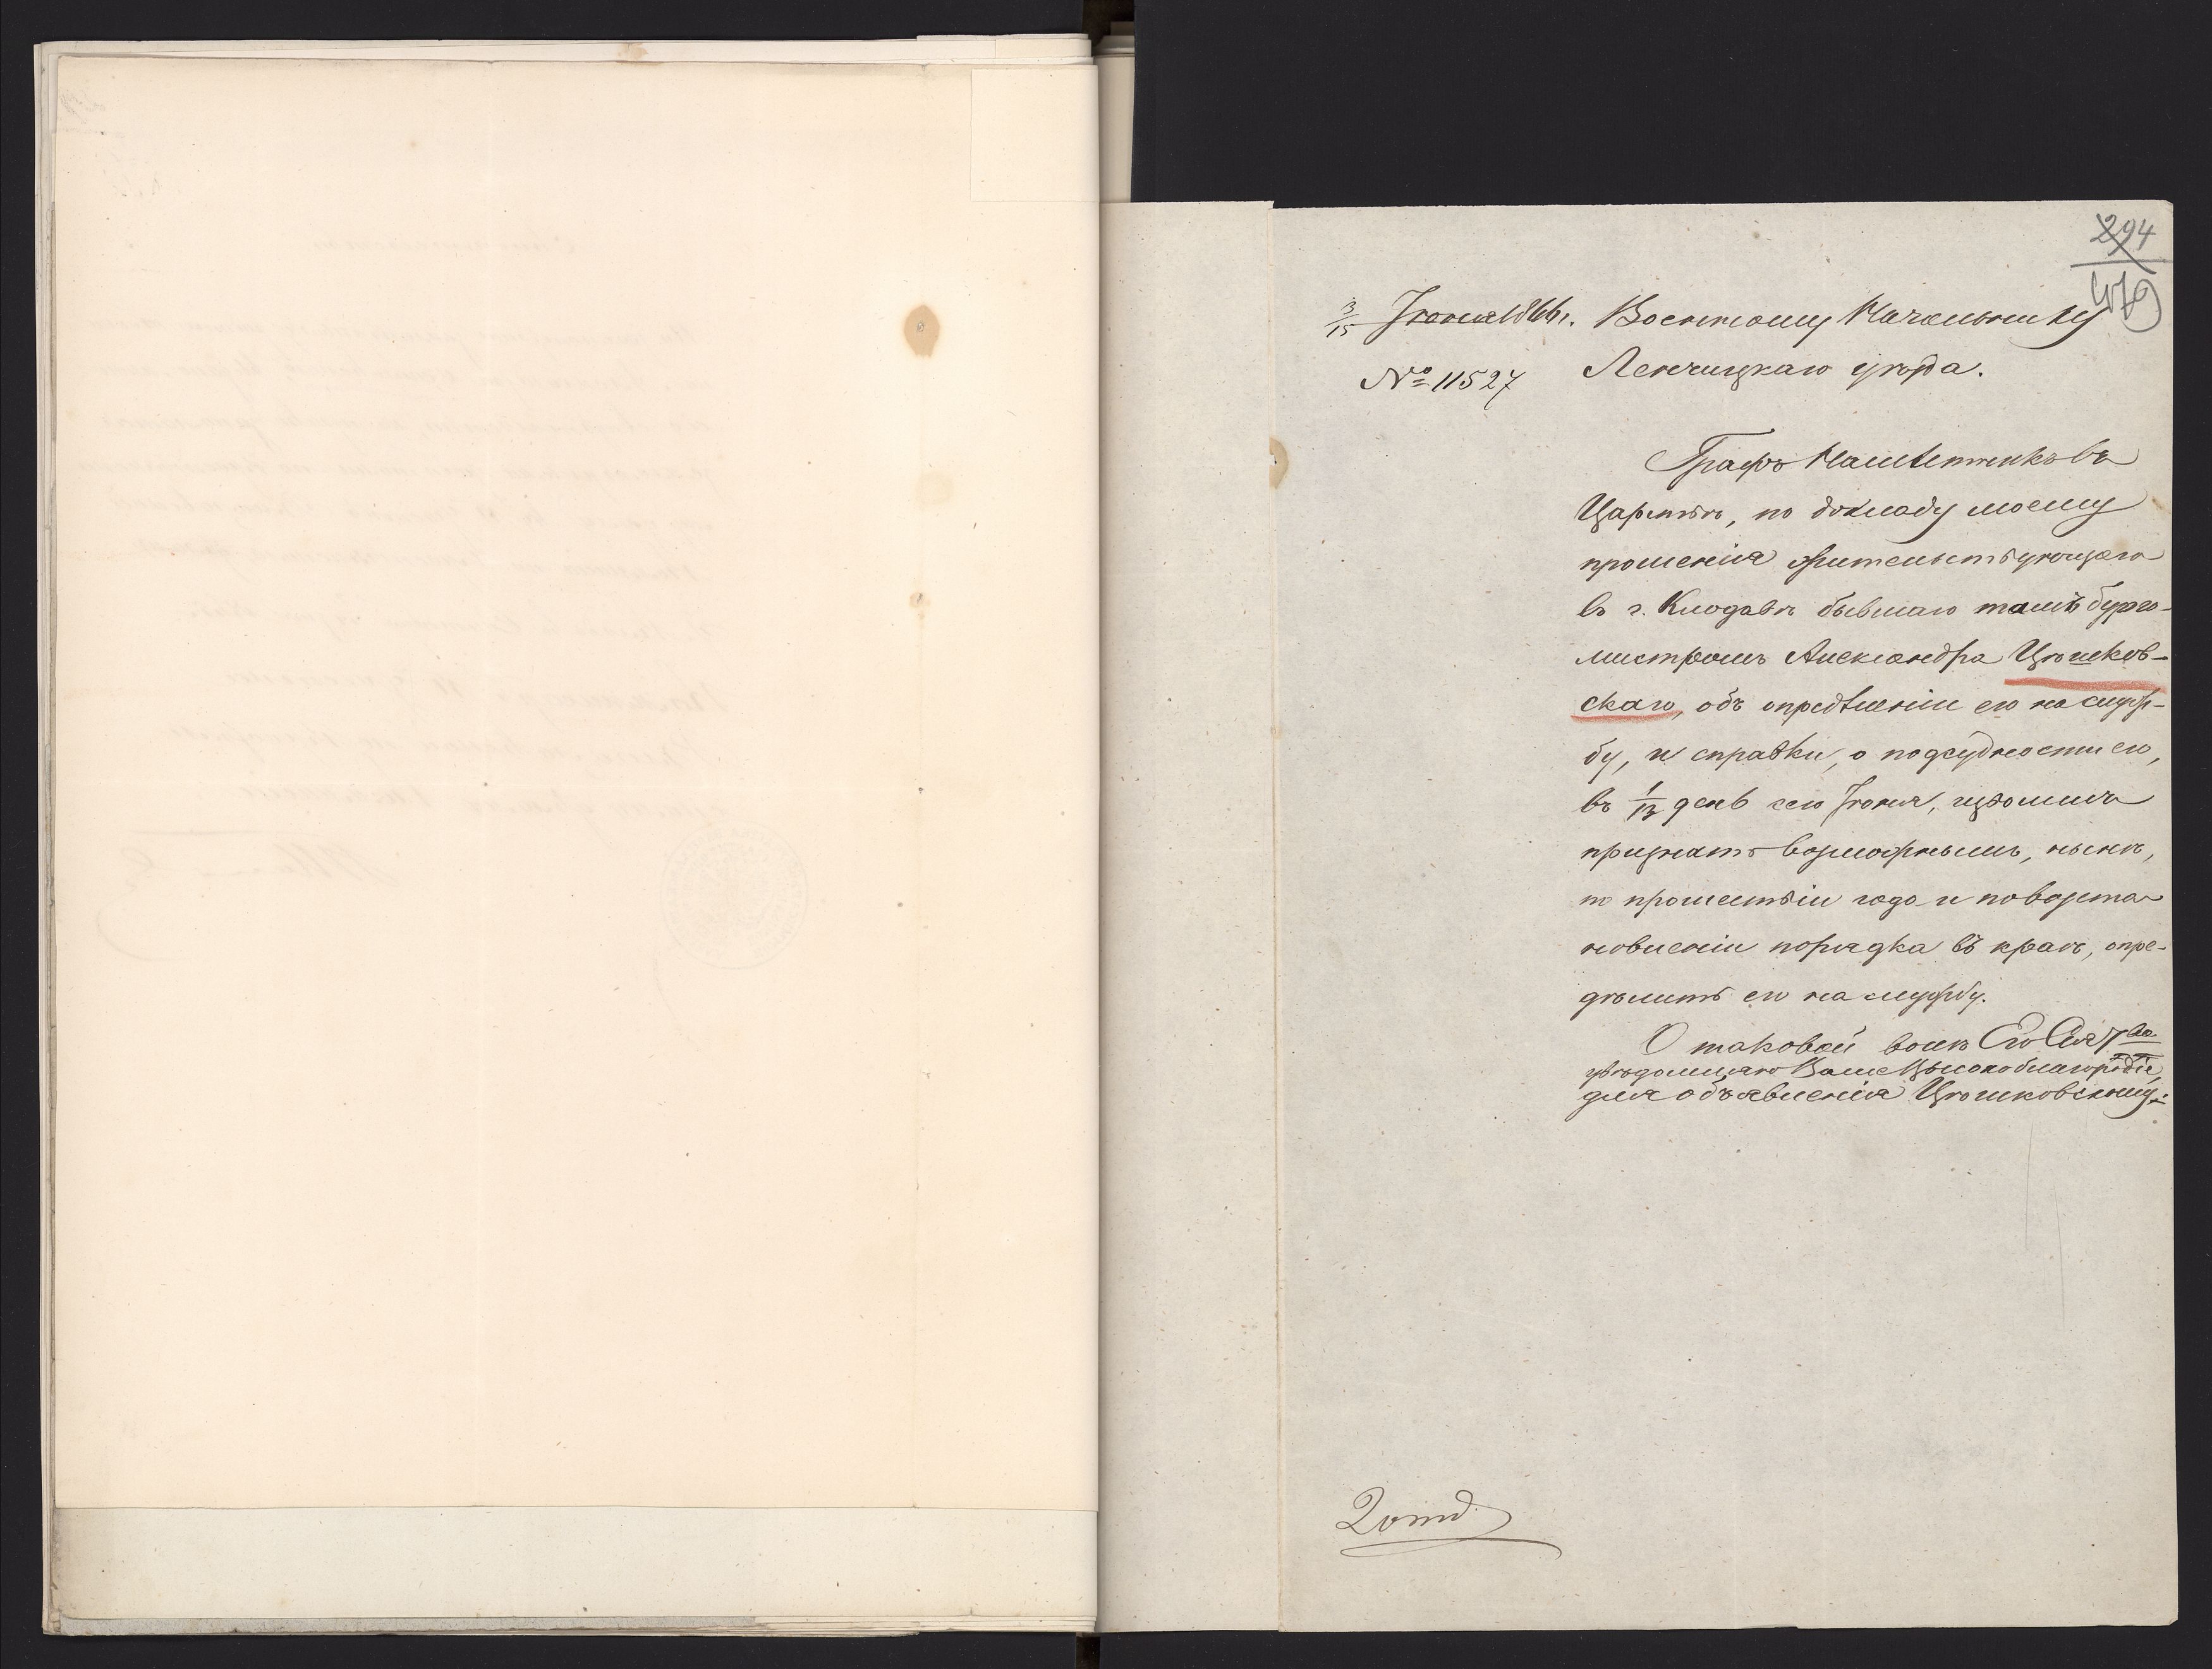 294
479
3/15 Іюня 1866 г.
№ 11527
Военному Начальнику
Ленчицкаго уѣзда.
Графъ Намѣстникъ въ
Царствѣ, по докладу моему
прошенія жительствующаго
въ г. Клодавѣ бывшаго тамъ бурго-
мистромъ Александра Цѣшков-
скаго, объ опредѣленіи его на служ-
бу, и справки, о подсудности его,
въ 1/13 день сего Іюня, изволилъ
признать возможнымъ, нынѣ,
по прошествіи года и по возста-
новленіи порядка въ краѣ, опре-
дѣлить его на службу.
О таковой волѣ Его Сія-ва
увѣдомляю Ваше Высокоблагородіе,
для объявленія Цѣшковскому.